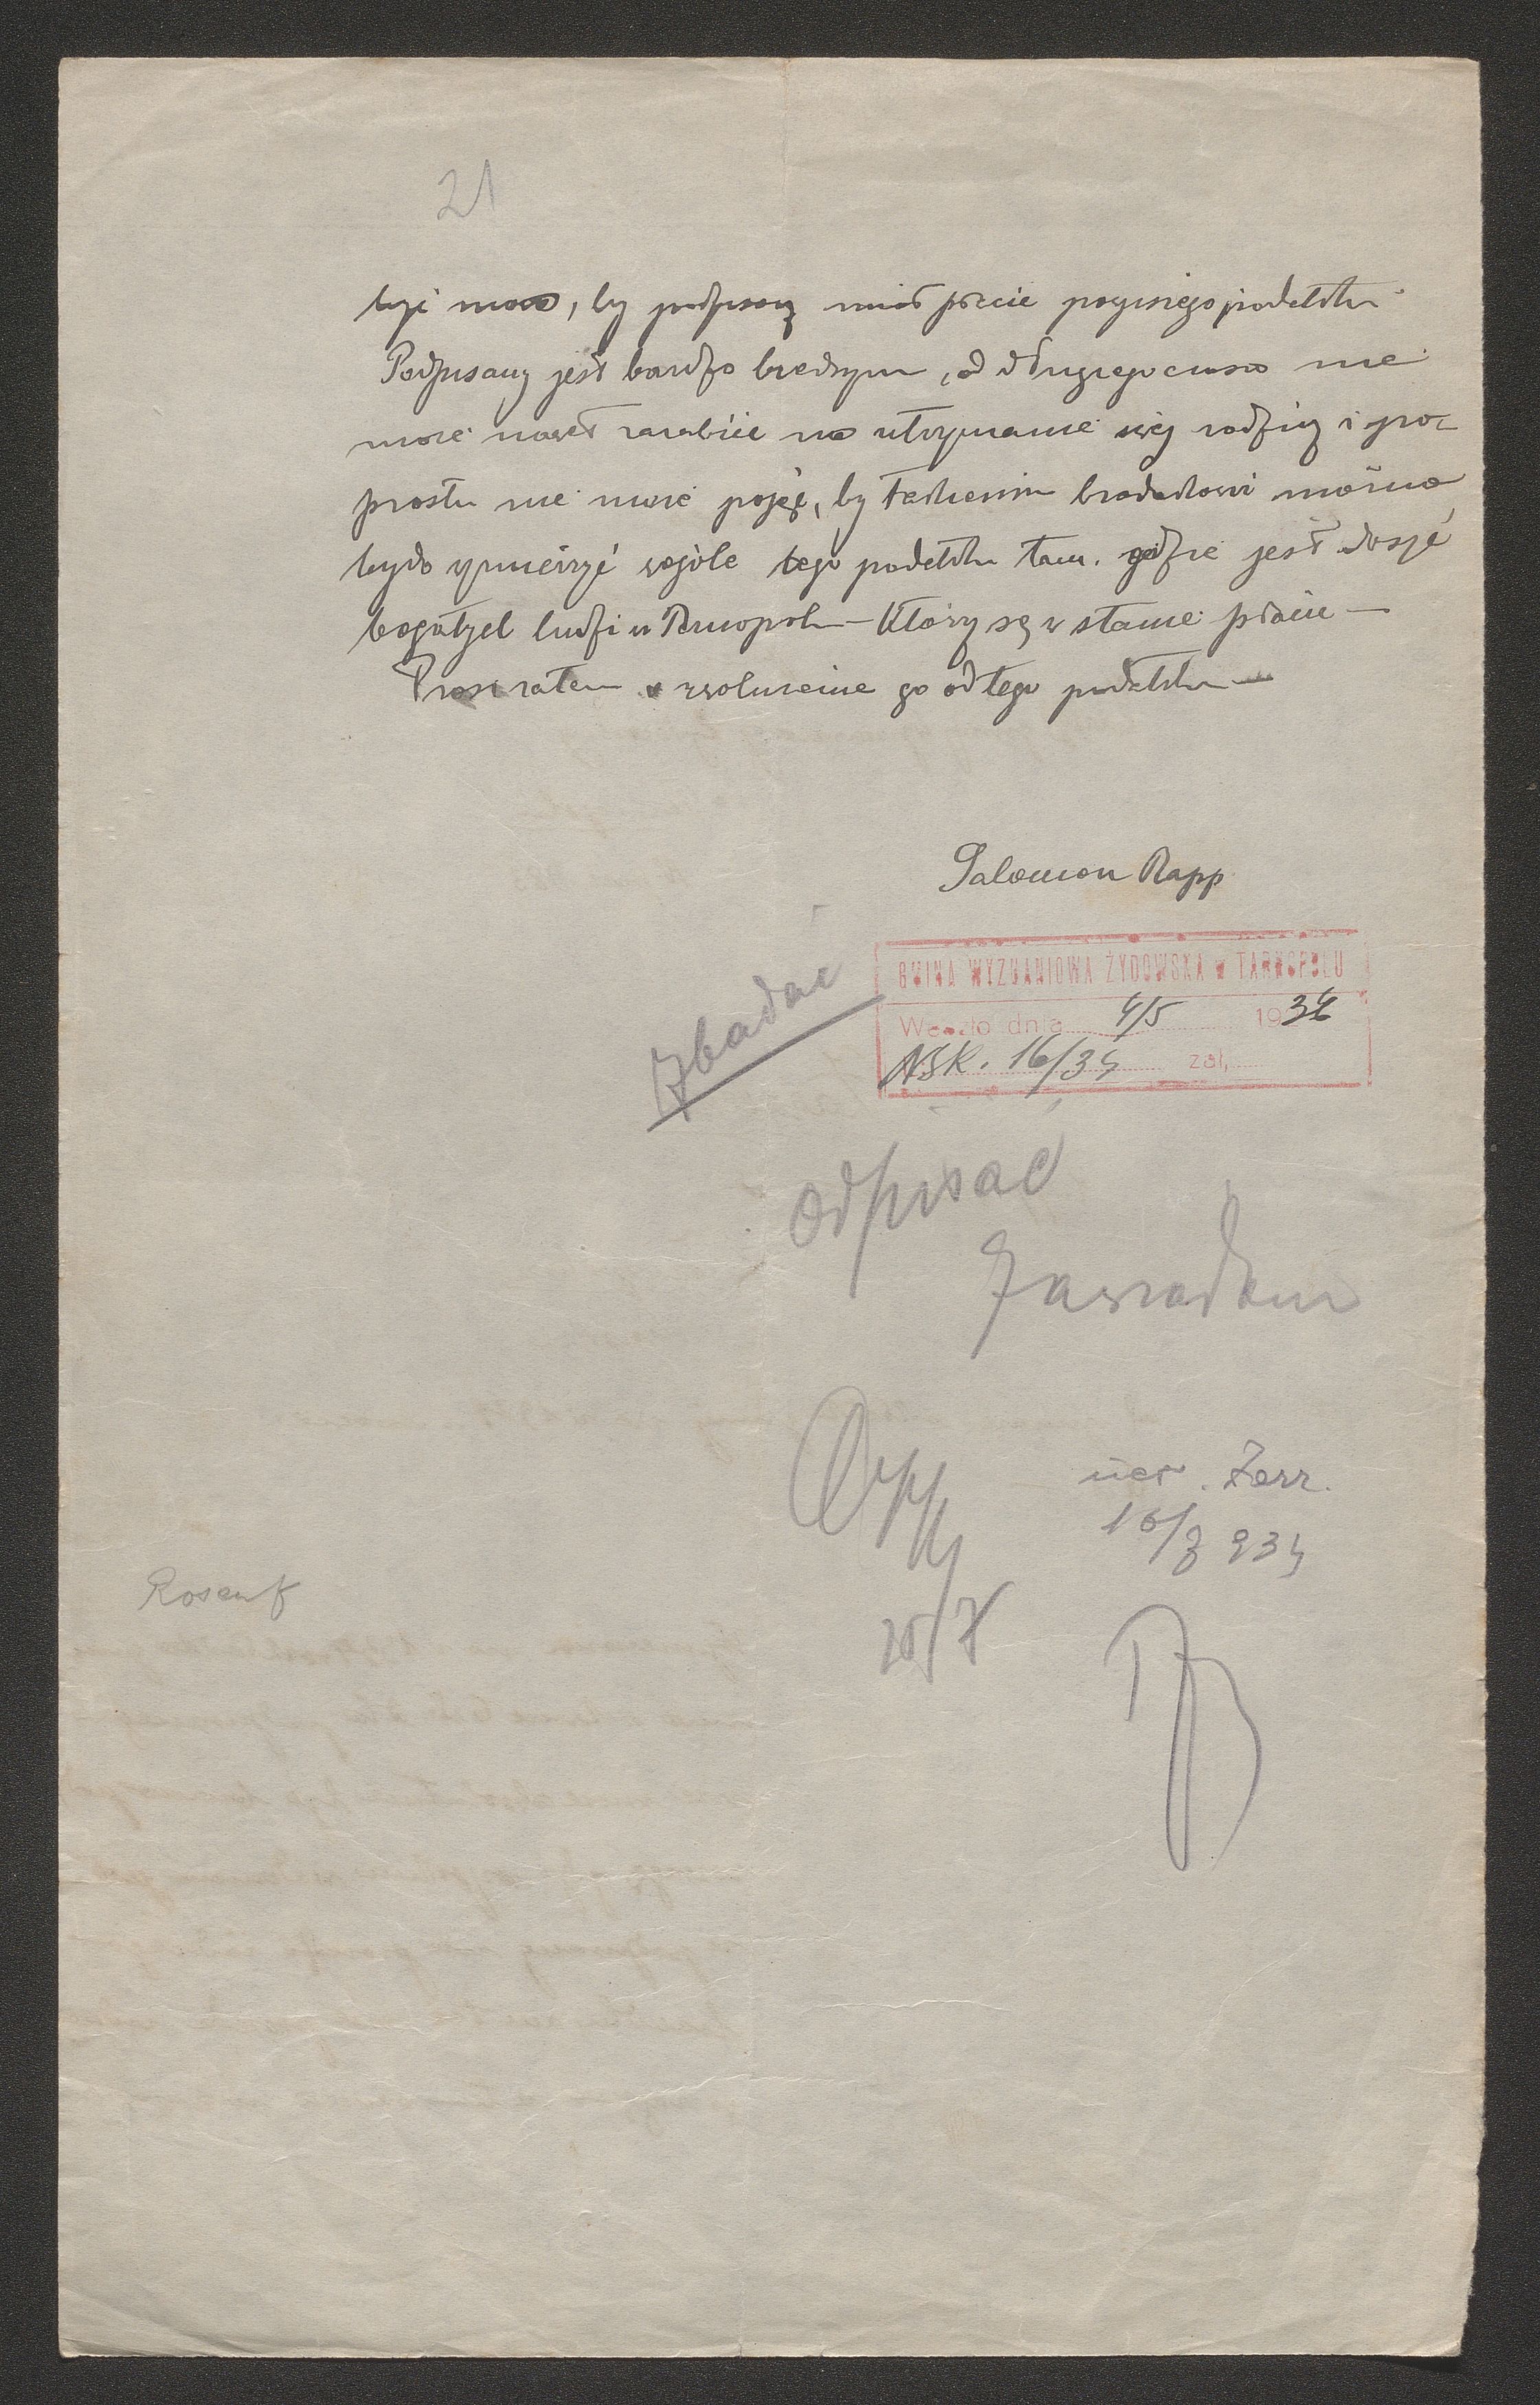 21
być mowa, by podpisany miał płacić powyższego podatku
Podpisany jest bardzo biednym, od długiego czasu nie
może nawet zarabiać na utrzymanie swej rodziny i po-
prostu nie może pojąć, by takiemu biedakowi można
było wymierzyć wogóle tego podatku tam, gdzie jest dosyć
bogatych ludzi w Tarnopolu – którzy są w stanie płacić –
Prosi zatem o zwolnienie go od tego podatku –
Salomon Rapp
GMINA WYZNANIOWA ŻYDOWSKA w TARNOPOLU
Weszło dnia 4/5 1934
16/34 zał.
Zbadać
Odpisać
Zawiadom
10/7 934
20/7
Rosenf